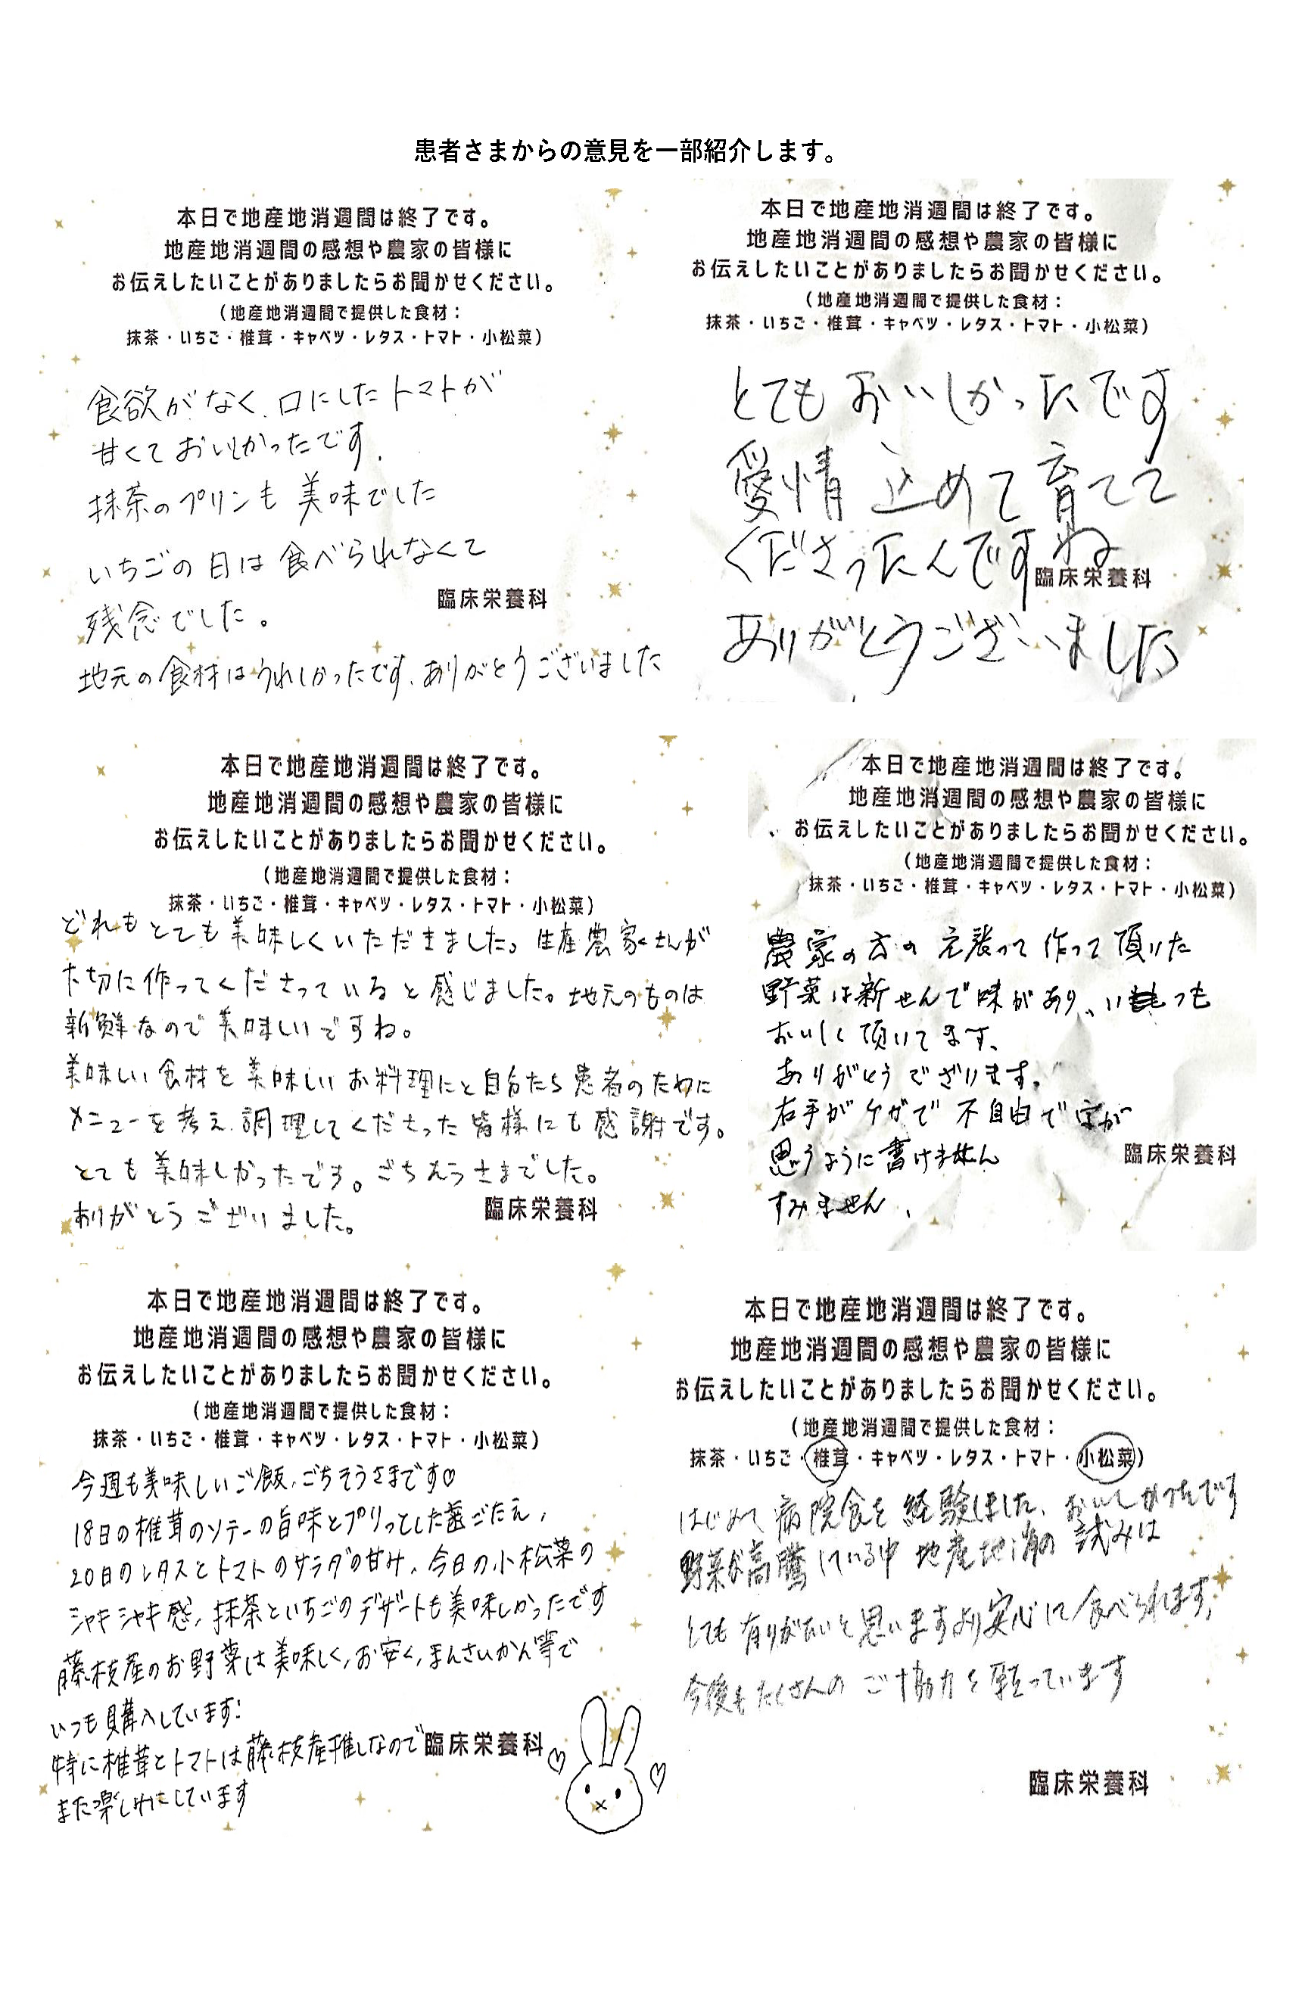 患者さまからの意見を一部紹介します。
本日で地産地消週間は終了です。
地産地消週間の感想や農家の皆様に
お伝えしたいことがありましたらお聞かせください。
(地産地消週間で提供した食材：
抹茶・いちご・椎茸・キャベツ・レタス・トマト・小松菜)
食欲がなく、口にしたトマトが
甘くておいしかったです。
抹茶のプリンも美味でした
いちごの日は食べられなくて
残念でした。
臨床栄養科
地元の食材はうれしかったです、ありがとうございました
本日で地産地消週間は終了です。
地産地消週間の感想や農家の皆様に
お伝えしたいことがありましたらお聞かせください。
(地産地消週間で提供した食材：
抹茶・いちご・椎茸・キャベツ・レタス・トマト・小松菜)
とてもおいしかったです
愛情込めて育てて
くださったんですね
臨床栄養科
ありがとうございました
本日で地産地消週間は終了です。
地産地消週間の感想や農家の皆様に
お伝えしたいことがありましたらお聞かせください。
(地産地消週間で提供した食材：
抹茶・いちご・椎茸・キャベツ・レタス・トマト・小松菜)
どれもとても美味しくいただきました。生産農家さんが
大切に作ってくださっていると感じました。地元のものは
新鮮なので美味しいですね。
美味しい食材を美味しいお料理にと自分たち患者のために
メニューを考え調理してくださった皆様にも感謝です。
とても美味しかったです。ごちそうさまでした。
ありがとうございました。
臨床栄養科
本日で地産地消週間は終了です。
地産地消週間の感想や農家の皆様に
お伝えしたいことがありましたらお聞かせください。
(地産地消週間で提供した食材：
抹茶・いちご・椎茸・キャベツ・レタス・トマト・小松菜)
農家の方の 張って作って頂けた
野菜は新せんで味があり、いつも
おいしく頂いてます、
ありがとうございます。
右手がケガで不自由で字が
思うように書けません
臨床栄養科
すみません、
本日で地産地消週間は終了です。
地産地消週間の感想や農家の皆様に
お伝えしたいことがありましたらお聞かせください。
(地産地消週間で提供した食材：
抹茶・いちご・椎茸・キャベツ・レタス・トマト・小松菜)
今週も美味しいご飯、ごちそうさまです♡
18日の椎茸のソテーの旨味とプリッとした歯ごたえ、
20日のレタスとトマトのサラダの甘み、今日の小松菜の
シャキシャキ感、抹茶といちごのデザートも美味しかったです
藤枝産のお野菜は美味しく、お安く、まんさいかん等で
いつも購入しています！
特に椎茸とトマトは藤枝産推しなので
臨床栄養科
また楽しみにしています
本日で地産地消週間は終了です。
地産地消週間の感想や農家の皆様に
お伝えしたいことがありましたらお聞かせください。
(地産地消週間で提供した食材：
抹茶・いちご・椎茸・キャベツ・レタス・トマト・小松菜)
はじめて病院食を経験しました、おいしかったです
野菜が高騰している中 地産地消の試みは
とても有りがたいと思いますより安心に食べられます。
今後もたくさんのご協力を願っています
臨床栄養科